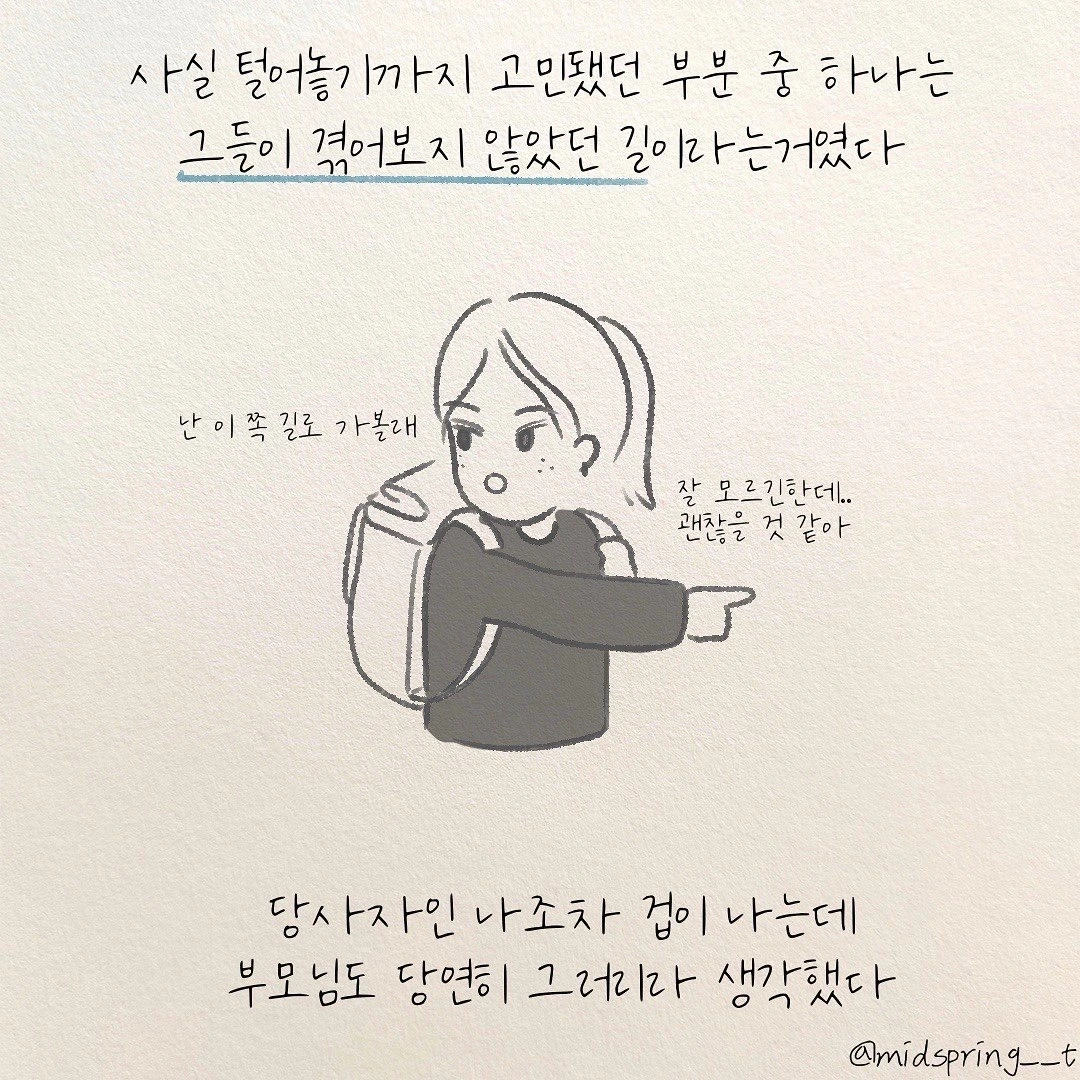 사실 털어놓기까지 고민됐던 부분 중 하나는
그들이 겪어보지 않았던 길이라는거였다
난 이 쪽 길로 가볼래
잘 모르긴한데..
괜찮을 것 같아
당사자인 나조차 겁이 나는데
부모님도 당연히 그러리라 생각했다
@midspring__t